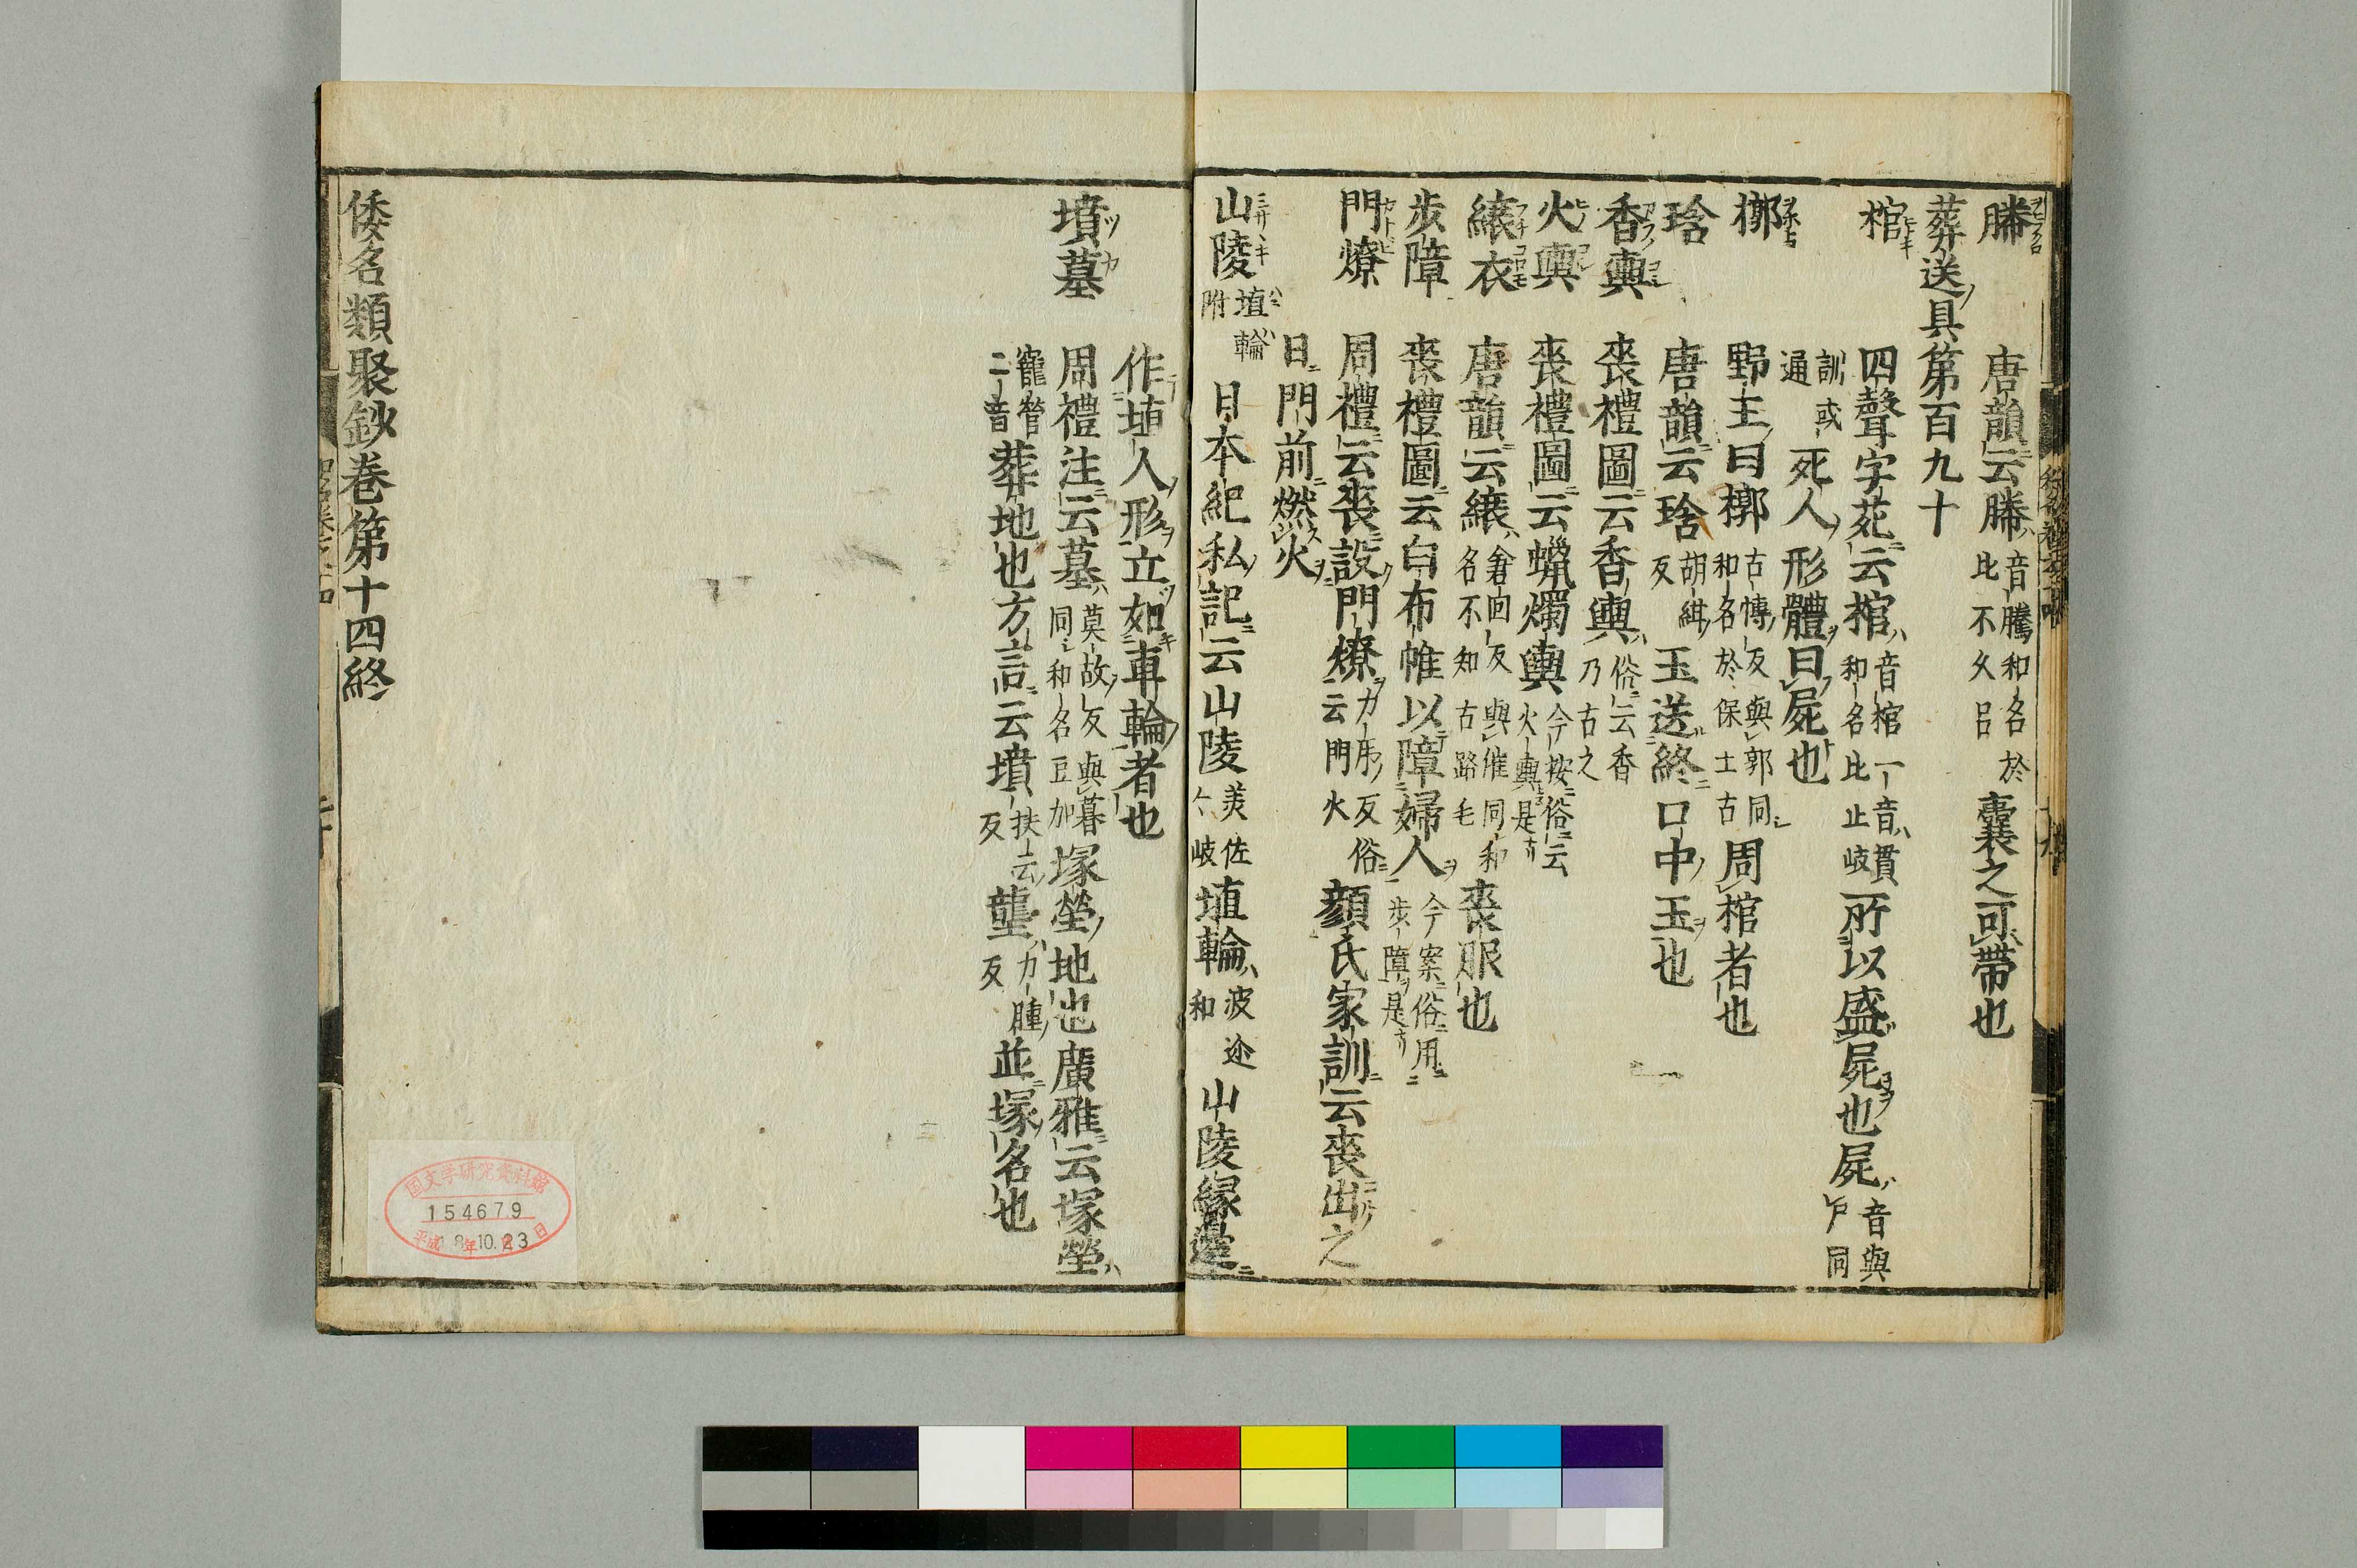 幐 唐韻云幐 音騰和名於比不久呂 囊之可帶也
葬送具第百九十
棺 四聲字苑云棺 音棺一音貫和名比止岐 所以盛屍也屍 音與尸同
訓或通 死人形體曰屍也
槨 野王曰槨 古博反與郭同和名於保土古 周棺者也
琀 唐韻云琀 胡紺反 玉送終口中玉也
香輿 喪禮圖云香輿 俗云香乃古之
火輿 喪禮圖云蠟燭輿 今按俗云火輿是
縗衣 唐韻云縗 倉回反與催同和名不知古路毛 喪服也
步障 喪禮圖云白布帷以障婦人 今案俗用步障是
門燎 周禮云喪設門燎 力弔反俗云門火 顏氏家訓云喪出之
日門前燃火
山陵 埴輪附 日本紀私記云山陵 美佐々岐 埴輪 波迩和 山陵緣邊
作埴人形立如車輪者也
墳墓 周禮注云墓 莫故反與暮同和名豆加 塚塋地也廣雅云塚塋
寵營二音 葬地也方言云墳 扶云反 壟 力腫反 並塚名也
倭名類聚鈔卷第十四終
国文学研究資料館
154679
平成18年10月23日